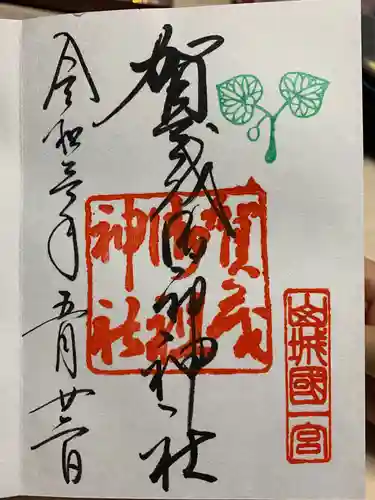 賀茂御祖神社
令和三年五月廿日
賀茂
御祖
神社
山城國一宮